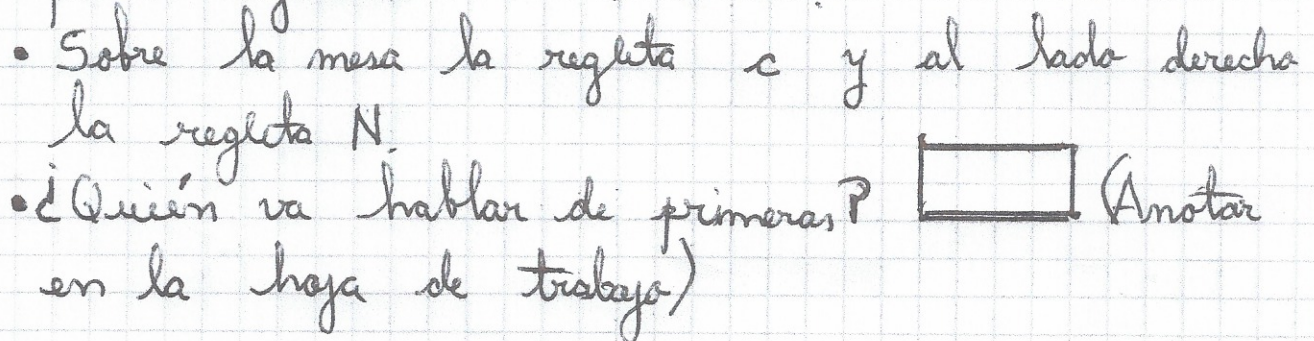 • Sobre la mesa la regleta c y al lado derecho
la regleta N.
• ¿Quién va hablar de primeras? (Anotar
en la hoja de trabajo)